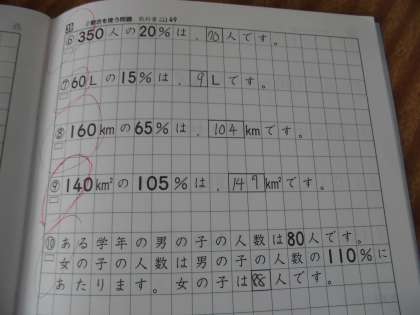 割合を使う問題
⑥350人の20%は、70人です。
⑦60Lの15%は、9Lです。
⑧160kmの65%は、104kmです。
⑨140km²の105%は、147km²です。
⑩ある学年の男の子の人数は80人です。
女の子の人数は男の子の人数の110%に
あたります。女の子は88人です。